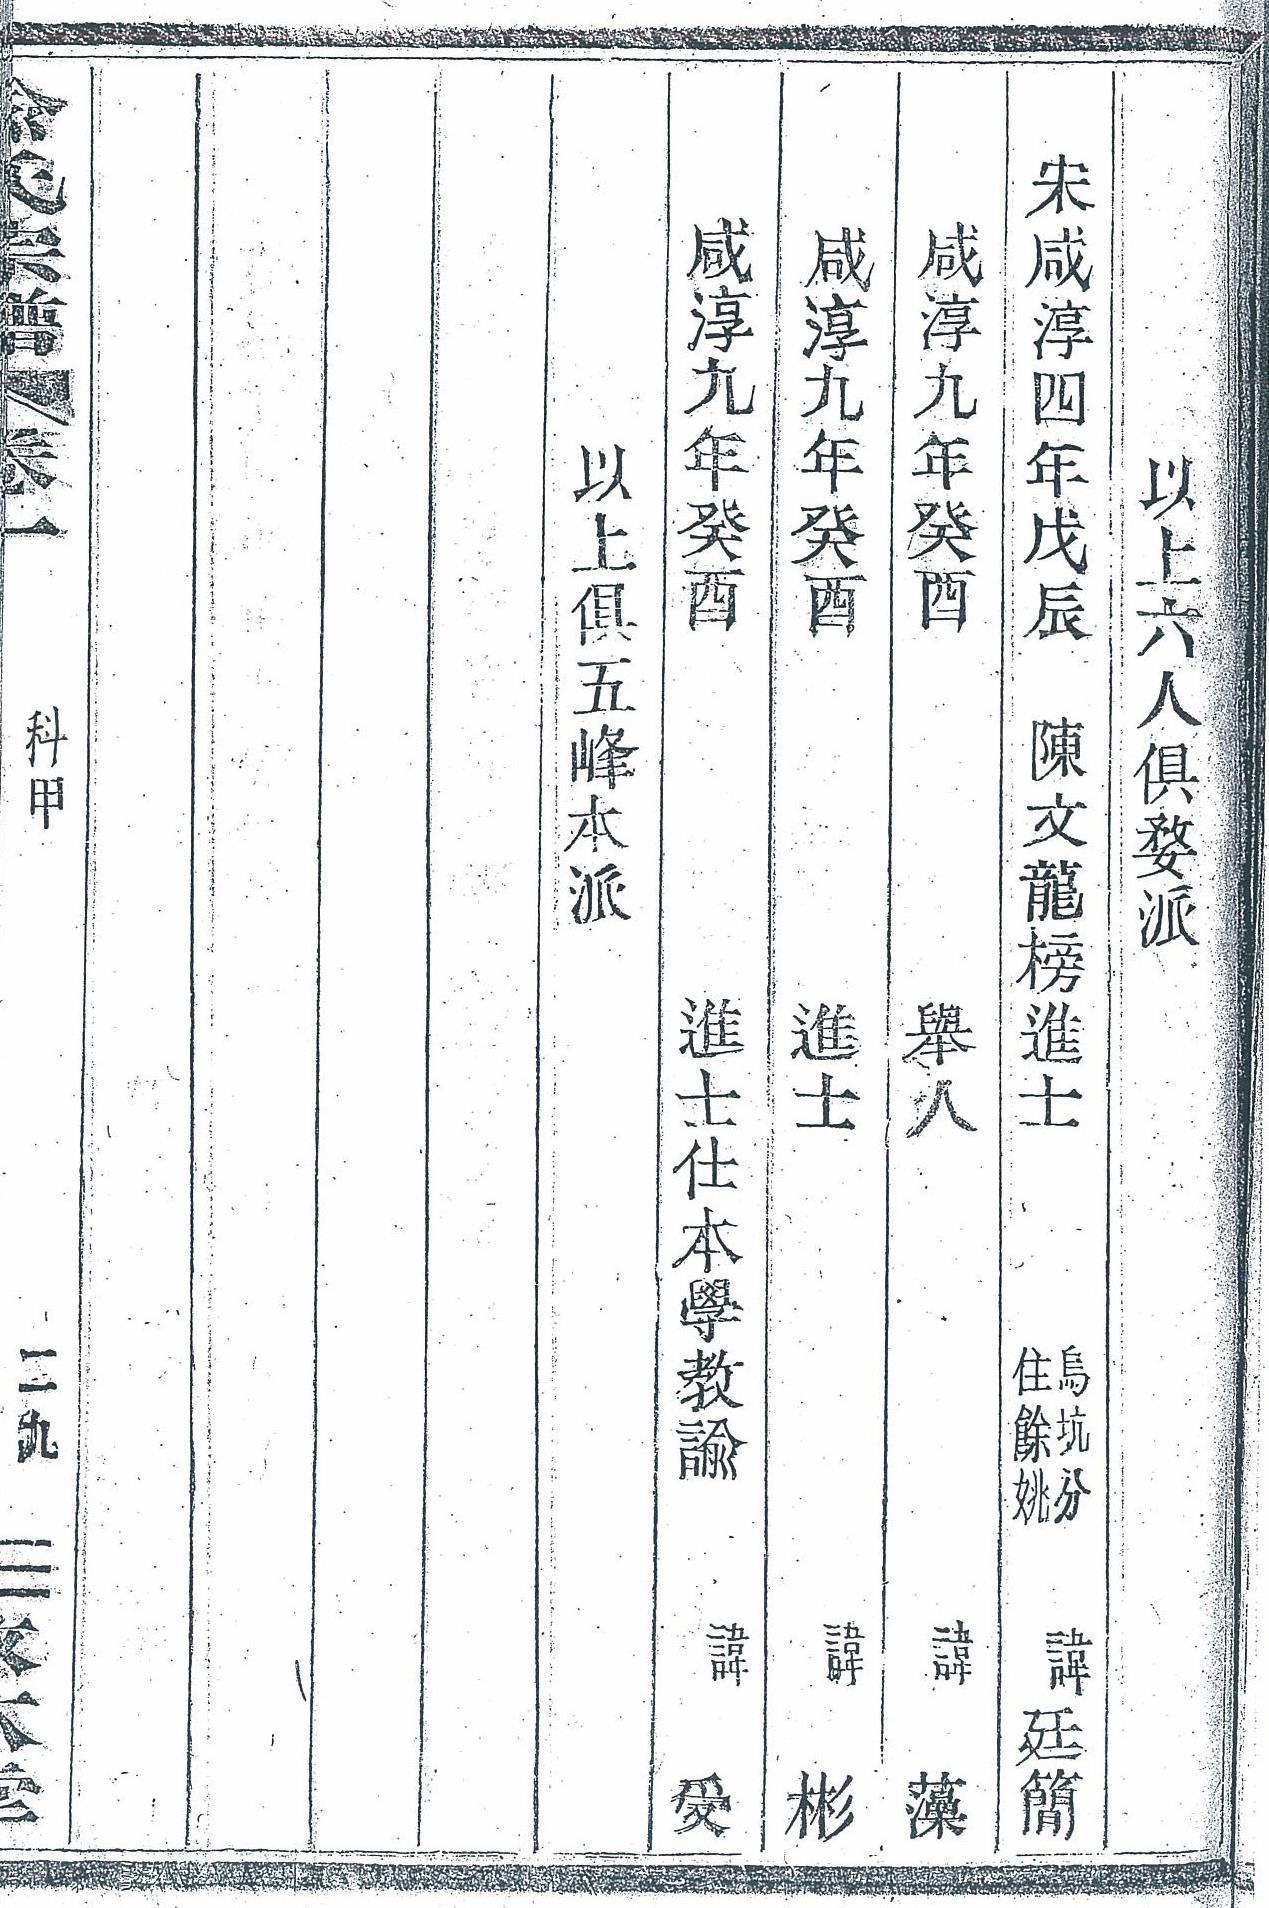 以上六人俱婺派
宋咸淳四年戊辰　陳文龍榜進士　烏坑分住餘姚　諱廷簡
咸淳九年癸酉　舉人　諱藻
咸淳九年癸酉　進士　諱彬
咸淳九年癸酉　進士仕本學教諭　諱受
以上俱五峰本派
氏宗譜　卷一　科甲　二九